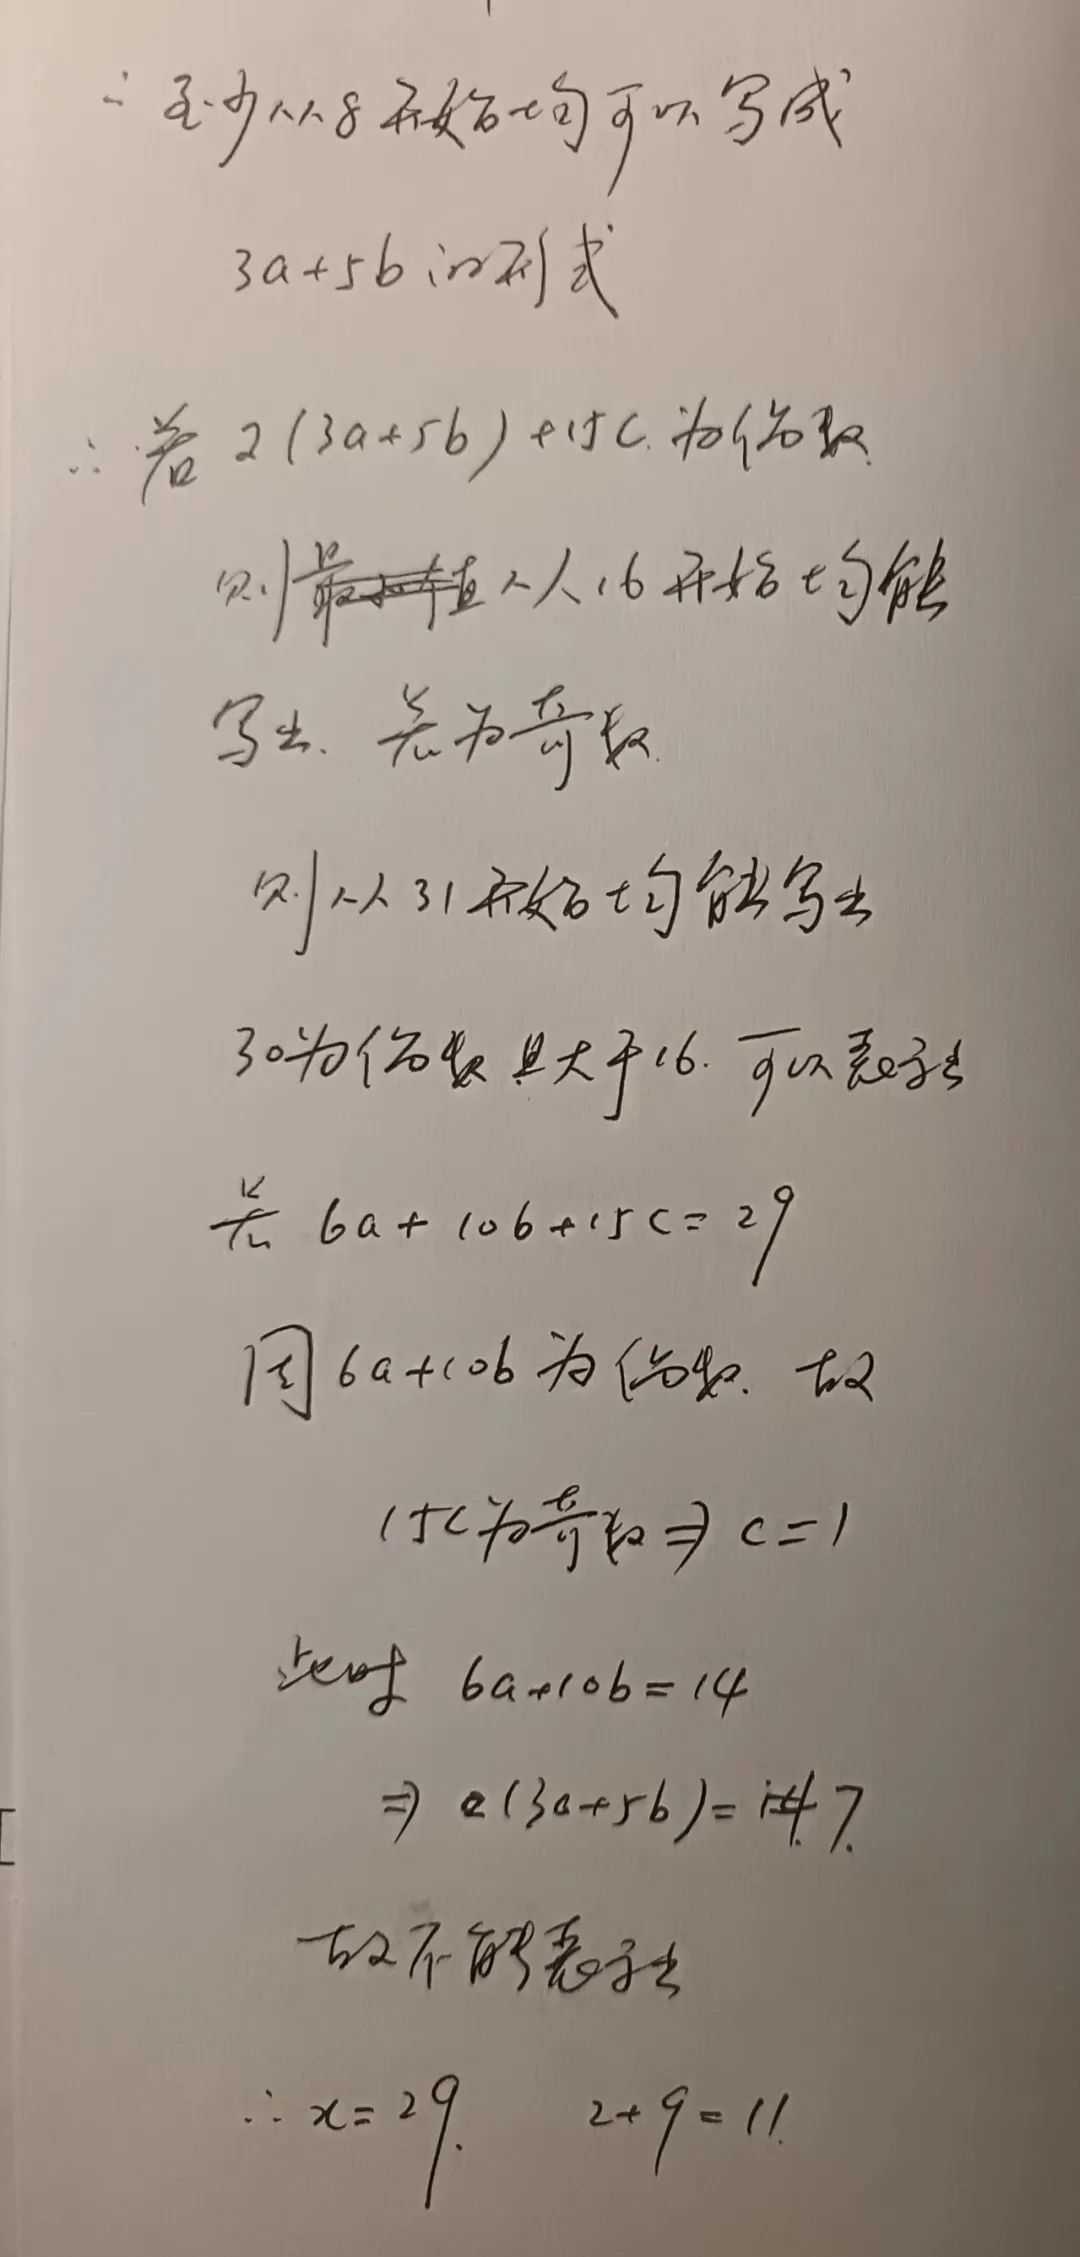 ∴ 至少从8开始均可以写成
3a+5b的形式
∴ 若 2(3a+5b)+15c 为偶数
则从16开始均能
写出. 若为奇数
则从31开始均能写出
30为偶数且大于16. 可以表示出
若 6a+10b+15c=29
因6a+10b为偶数. 故
15c为奇数⇒c=1
此时 6a+10b=14
⇒ (3a+5b)=7.
故不能表示出
∴ x=29. 2+9=11.